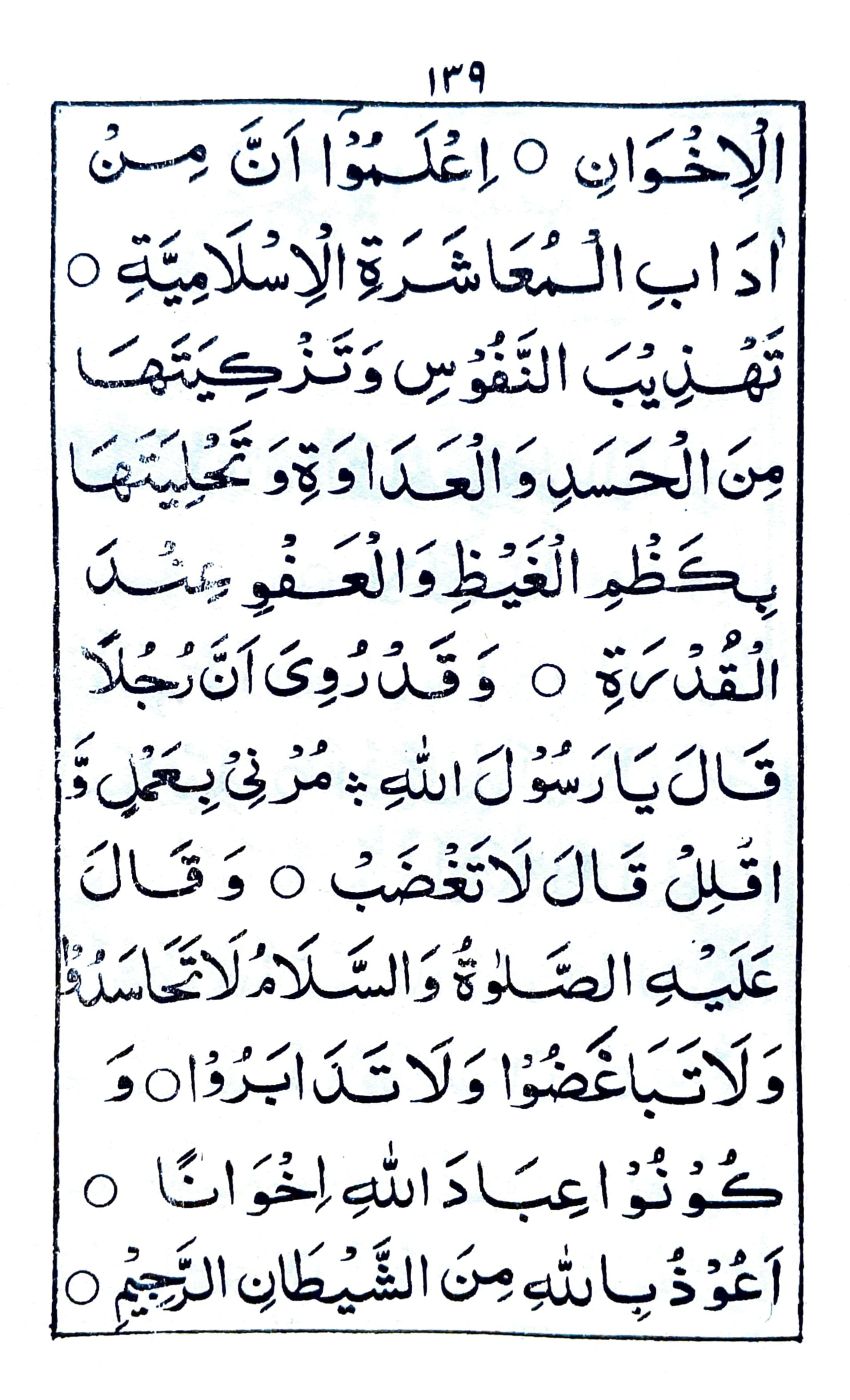 ١٣٩
الْاِخْوَانِ ○ اِعْلَمُوْٓا اَنَّ مِنْ
اٰدَابِ الْمُعَاشَرَةِ الْاِسْلَامِيَّةِ ○
تَهْذِيْبَ النَّفُوْسِ وَتَزْكِيَتَهَا
مِنَ الْحَسَدِ وَالْعَدَاوَةِ وَتَحْلِيَتَهَا
بِكَظْمِ الْغَيْظِ وَالْعَفْوِ عِنْدَ
الْقُدْرَةِ ○ وَقَدْ رُوِىَ اَنَّ رُجُلًا
قَالَ يَا رَسُوْلَ اللهِ ؞ مُرْنِىْ بِعَمْلٍ وَّ
اقْلِلْ قَالَ لَا تَغْضَبْ ○ وَقَالَ
عَلَيْهِ الصَّلٰوةُ وَالسَّلَامُ لَا تَحَاسَدُوْا
وَلَا تَبَاغَضُوْا وَلَا تَدَابَرُوْا ○ وَ
كُوْنُوْا عِبَادَ اللهِ اِخْوَانًا ○
اَعُوْذُ بِاللهِ مِنَ الشَّيْطَانِ الرَّجِيْمِ ○